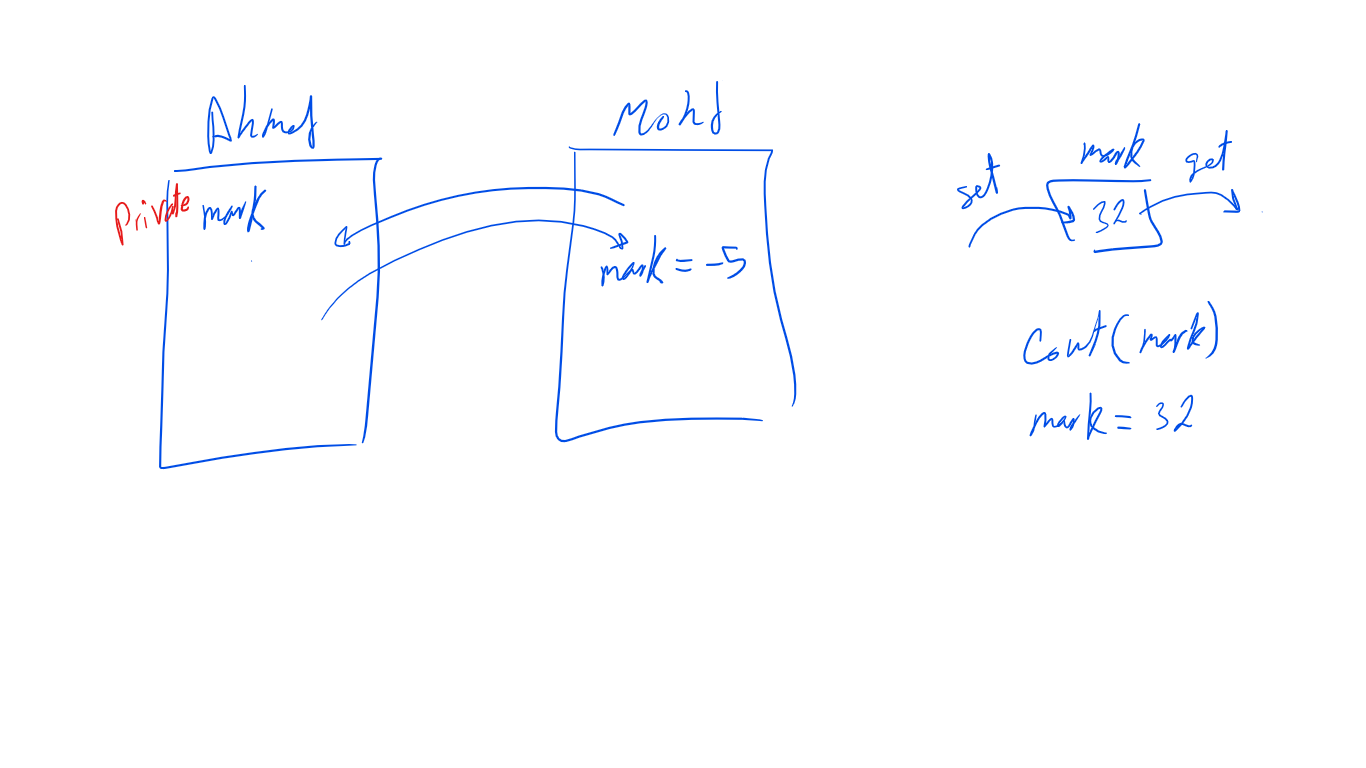 Ahmed
Private mark
Mohd
mark = -5
set
mark
get
32
Cout(mark)
mark = 32